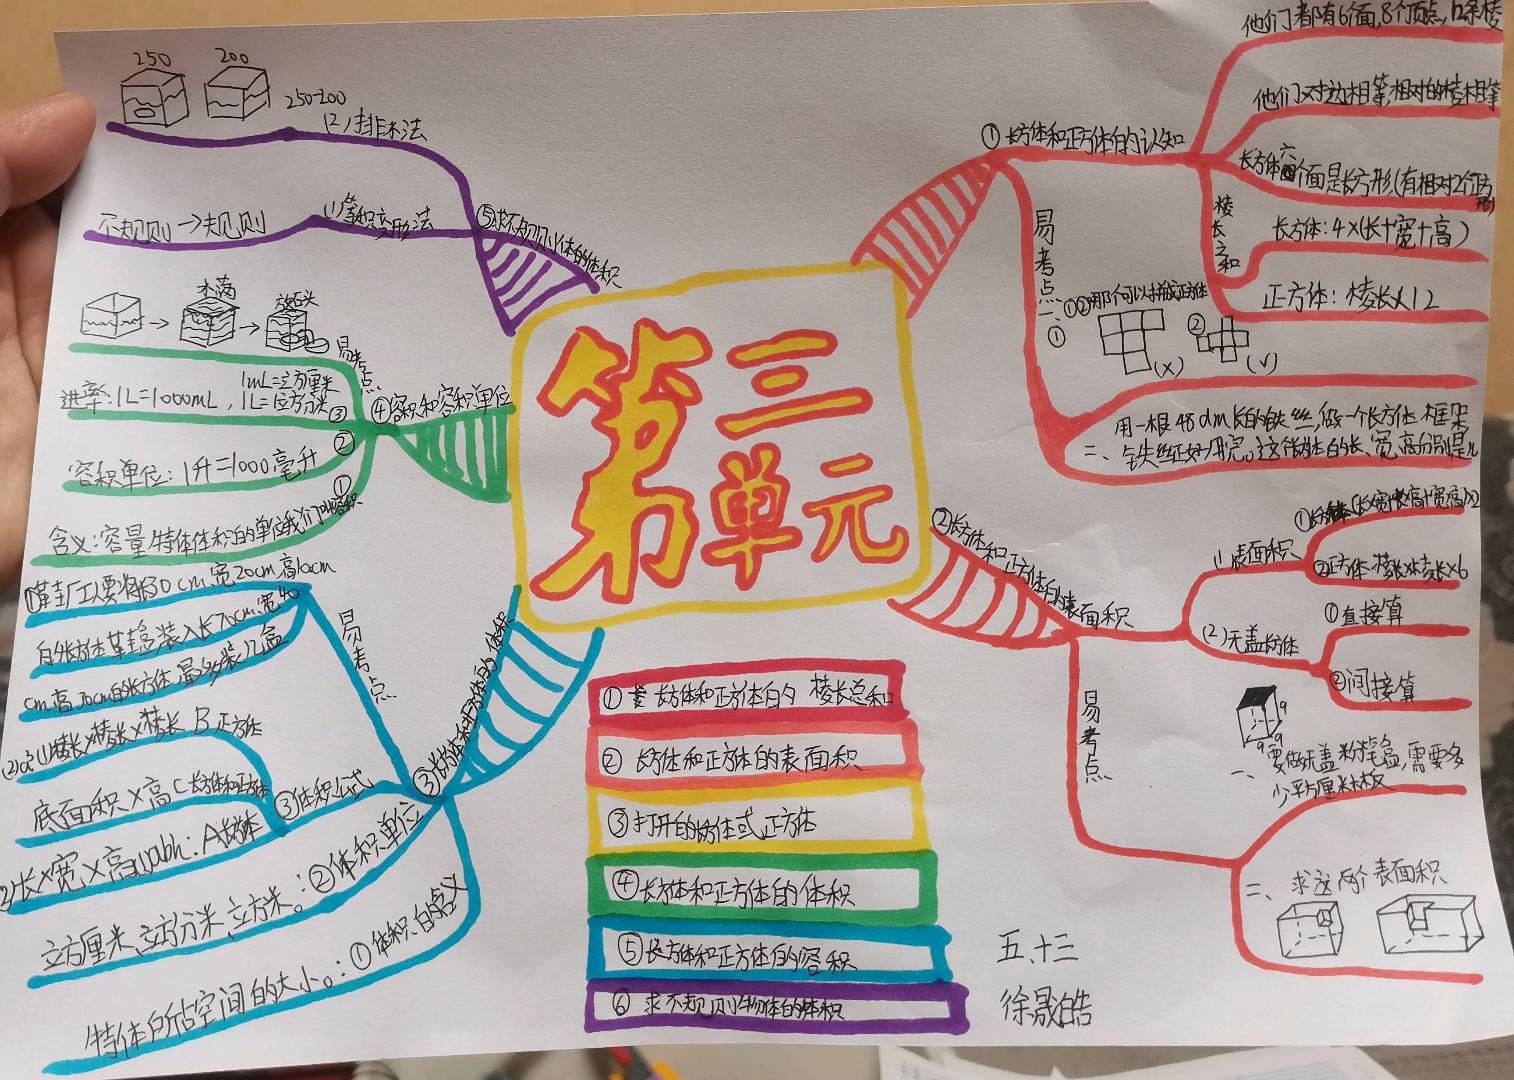 第三单元
①长方体和正方体的认知
他们都有6个面,8个顶点,12条棱
他们对边相等,相对的棱相等
长方体六个面是长方形(有相对2个正方形)
棱长之和
长方体:4×(长+宽+高)
正方体:棱长×12
易考点
一、①
①②哪个可以拼成正方体
②
(×)
(√)
二、用一根48dm长的铁丝,做一个长方体框架
铁丝正好用完。这个长方体的长、宽、高分别是
②长方体和正方体的表面积
(1)表面积
①长方体(长宽+长高+宽高)×2
②正方体:棱长×棱长×6
(2)无盖长方体
①直接算
②间接算
易考点
9
9
9
一、要做无盖粉笔盒,需要多
少平方厘米木板
二、求这两个表面积
③长方体和正方体的体积
①体积的含义
特体所占空间的大小。:
②体积单位
立方厘米、立方分米、立方米。:
③体积公式
长×宽×高=abh:A长方体
(2)a³(1)棱长×棱长×棱长 B正方体
底面积×高C长方体和正方体
易考点
高10cm
宽20cm
自长方体 装入长70cm,宽40
cm高 cm的长方体,最多装几盒
④容积和容积单位
①
含义:容量特体体积的单位我们叫容积
②
容积单位:1升=1000毫升
③
进率:1L=1000mL,
1mL=立方厘米
1L=1立方分米
易考点
水满
放石头
⑤求不规则体的体积
(1)等积变形法
不规则→规则
(2)排水法
250
200
250-200
① 长方体和正方体的 棱长总和
② 长方体和正方体的表面积
③打开的长方体或正方体
④长方体和正方体的体积
⑤长方体和正方体的容积
⑥ 求不规则物体的体积
五、十三
徐晟皓